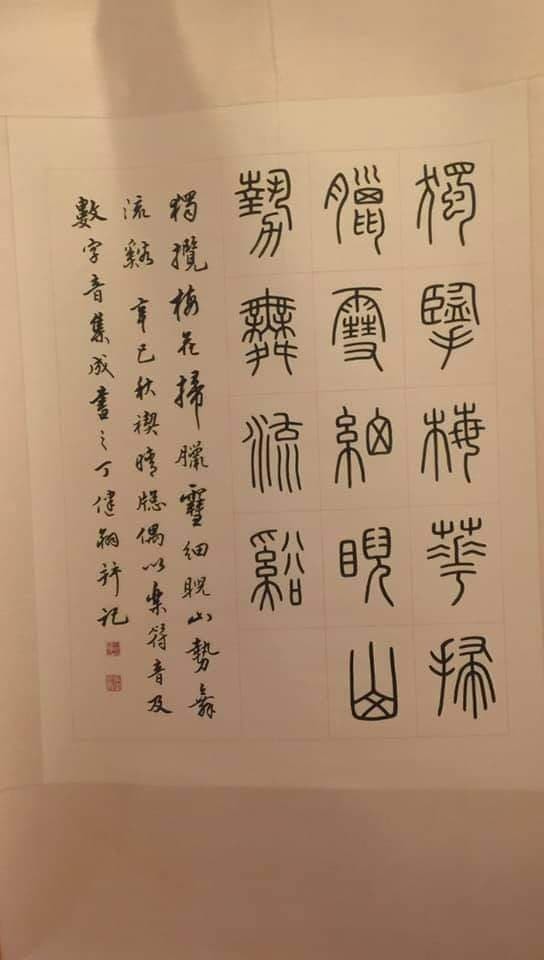 獨擥梅華掃
臘雪細睨山
勢舞流谿
獨攬梅花掃臘雪細睨山勢舞
流谿 辛巳秋禊晴牕偶以樂符音及
數字音集成書之丁健記